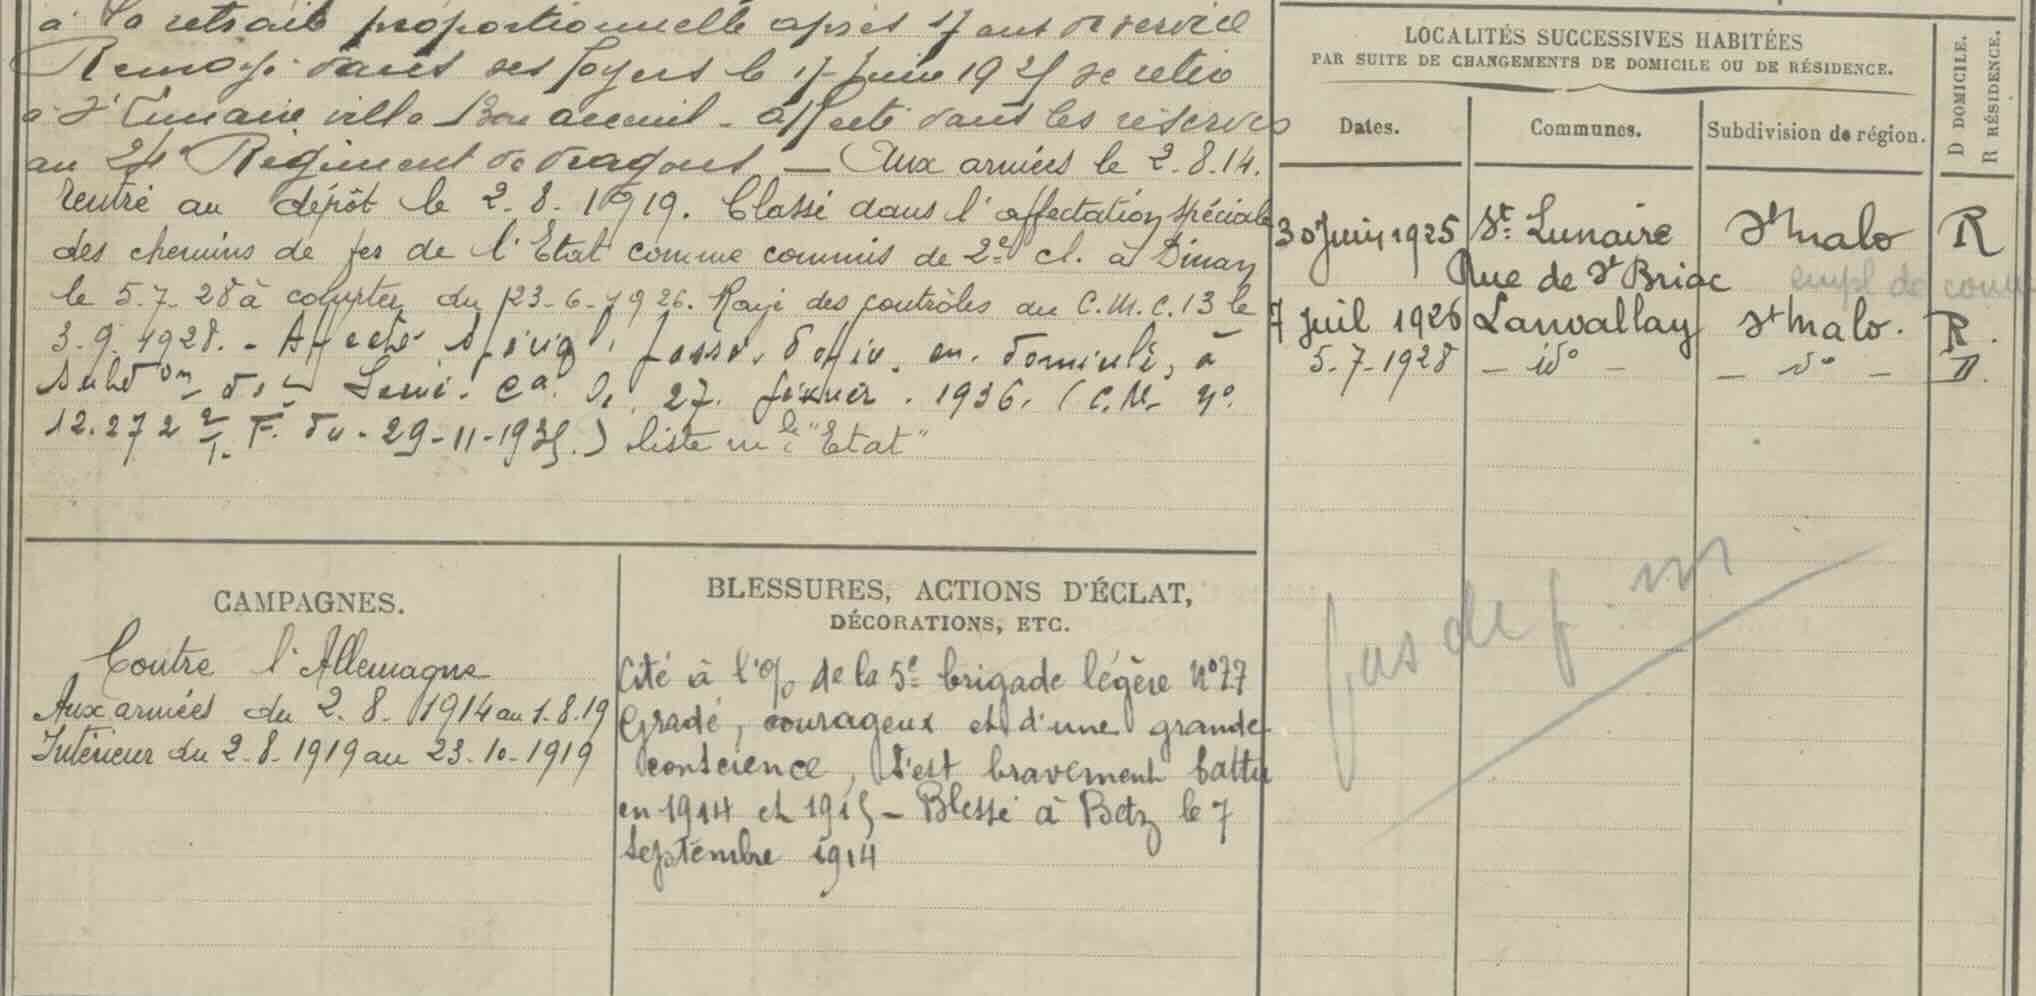 à la retraite proportionnelle après 17 ans de service
Renvoyé dans ses foyers le 17 Juin 1925 se retire
à St Lunaire villa Bon accueil - affecté dans les réserves
au 24e Régiment de dragons - Aux armées le 2.8.14.
rentré au dépôt le 2.8.1919. Classé dans l'affectation spéciale
des chemins de fer de l'Etat comme commis de 2e cl. à Dinan
le 5.7.28 à compter du 23-6-1926. Rayé des contrôles du C.M.C. 13 le
3.9.1928. - Affecté
27 1936. (C.M. no
12.272 du 29-11-1935.) liste "Etat"
CAMPAGNES.
Contre l'Allemagne
Aux armées du 2.8.1914 au 1.8.19
Intérieur du 2-8-1919 au 23-10-1919
BLESSURES, ACTIONS D'ÉCLAT,
DÉCORATIONS, ETC.
Cité à l'o/ de la 5e brigade légère No 77
Gradé, courageux et d'une grande
conscience, s'est bravement battu
en 1914 et 1915 - Blessé à Betz le 7
Septembre 1914
LOCALITÉS SUCCESSIVES HABITÉES
PAR SUITE DE CHANGEMENTS DE DOMICILE OU DE RÉSIDENCE.
Dates. Communes. Subdivision de région.
D DOMICILE.
R RÉSIDENCE.
30 Juin 1925 St. Lunaire St Malo R
Rue de St Briac empl de
7 Juil 1926 Lanvallay St Malo. R.
5-7-1928 - ido - - do - D.